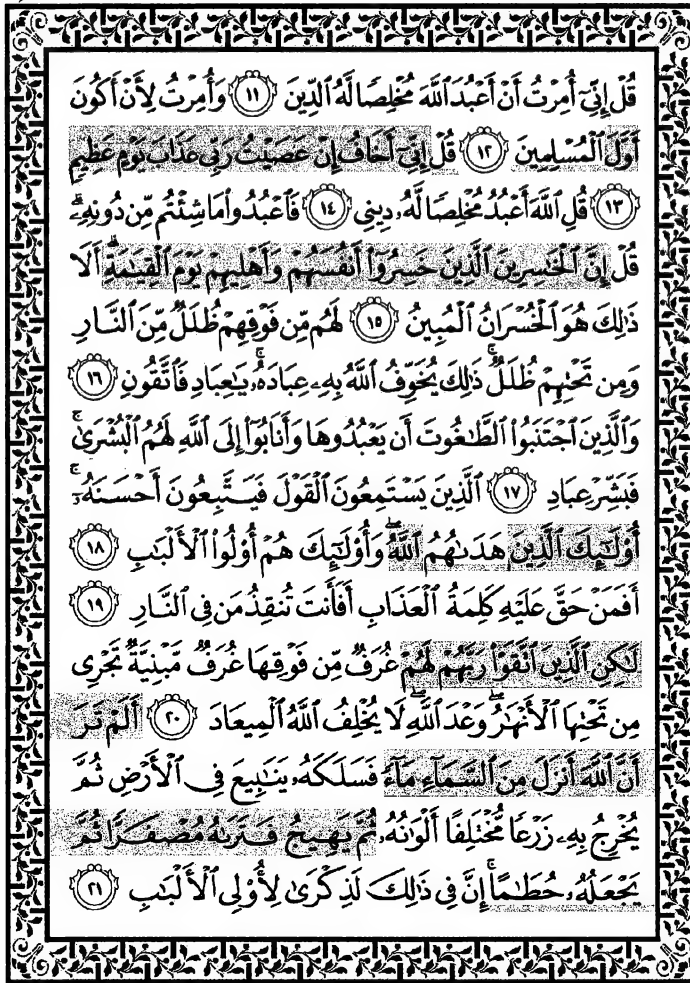 قُلْ إِنِّىٓ أُمِرْتُ أَنْ أَعْبُدَ ٱللَّهَ مُخْلِصًا لَّهُ ٱلدِّينَ ﴿١١﴾ وَأُمِرْتُ لِأَنْ أَكُونَ
أَوَّلَ ٱلْمُسْلِمِينَ ﴿١٢﴾ قُلْ إِنِّىٓ أَخَافُ إِنْ عَصَيْتُ رَبِّى عَذَابَ يَوْمٍ عَظِيمٍ
﴿١٣﴾ قُلِ ٱللَّهَ أَعْبُدُ مُخْلِصًا لَّهُۥ دِينِى ﴿١٤﴾ فَٱعْبُدُوا۟ مَا شِئْتُم مِّن دُونِهِۦۗ
قُلْ إِنَّ ٱلْخَٰسِرِينَ ٱلَّذِينَ خَسِرُوٓا۟ أَنفُسَهُمْ وَأَهْلِيهِمْ يَوْمَ ٱلْقِيَٰمَةِۗ أَلَا
ذَٰلِكَ هُوَ ٱلْخُسْرَانُ ٱلْمُبِينُ ﴿١٥﴾ لَهُم مِّن فَوْقِهِمْ ظُلَلٌ مِّنَ ٱلنَّارِ
وَمِن تَحْتِهِمْ ظُلَلٌۚ ذَٰلِكَ يُخَوِّفُ ٱللَّهُ بِهِۦ عِبَادَهُۥۚ يَٰعِبَادِ فَٱتَّقُونِ ﴿١٦﴾
وَٱلَّذِينَ ٱجْتَنَبُوا۟ ٱلطَّٰغُوتَ أَن يَعْبُدُوهَا وَأَنَابُوٓا۟ إِلَى ٱللَّهِ لَهُمُ ٱلْبُشْرَىٰۚ
فَبَشِّرْ عِبَادِ ﴿١٧﴾ ٱلَّذِينَ يَسْتَمِعُونَ ٱلْقَوْلَ فَيَتَّبِعُونَ أَحْسَنَهُۥٓۚ
أُو۟لَٰٓئِكَ ٱلَّذِينَ هَدَىٰهُمُ ٱللَّهُۖ وَأُو۟لَٰٓئِكَ هُمْ أُو۟لُوا۟ ٱلْأَلْبَٰبِ ﴿١٨﴾
أَفَمَنْ حَقَّ عَلَيْهِ كَلِمَةُ ٱلْعَذَابِ أَفَأَنتَ تُنقِذُ مَن فِى ٱلنَّارِ ﴿١٩﴾
لَٰكِنِ ٱلَّذِينَ ٱتَّقَوْا۟ رَبَّهُمْ لَهُمْ غُرَفٌ مِّن فَوْقِهَا غُرَفٌ مَّبْنِيَّةٌ تَجْرِى
مِن تَحْتِهَا ٱلْأَنْهَٰرُۖ وَعْدَ ٱللَّهِۖ لَا يُخْلِفُ ٱللَّهُ ٱلْمِيعَادَ ﴿٢٠﴾ أَلَمْ تَرَ
أَنَّ ٱللَّهَ أَنزَلَ مِنَ ٱلسَّمَآءِ مَآءً فَسَلَكَهُۥ يَنَٰبِيعَ فِى ٱلْأَرْضِ ثُمَّ
يُخْرِجُ بِهِۦ زَرْعًا مُّخْتَلِفًا أَلْوَٰنُهُۥ ثُمَّ يَهِيجُ فَتَرَىٰهُ مُصْفَرًّا ثُمَّ
يَجْعَلُهُۥ حُطَٰمًاۚ إِنَّ فِى ذَٰلِكَ لَذِكْرَىٰ لِأُو۟لِى ٱلْأَلْبَٰبِ ﴿٢١﴾